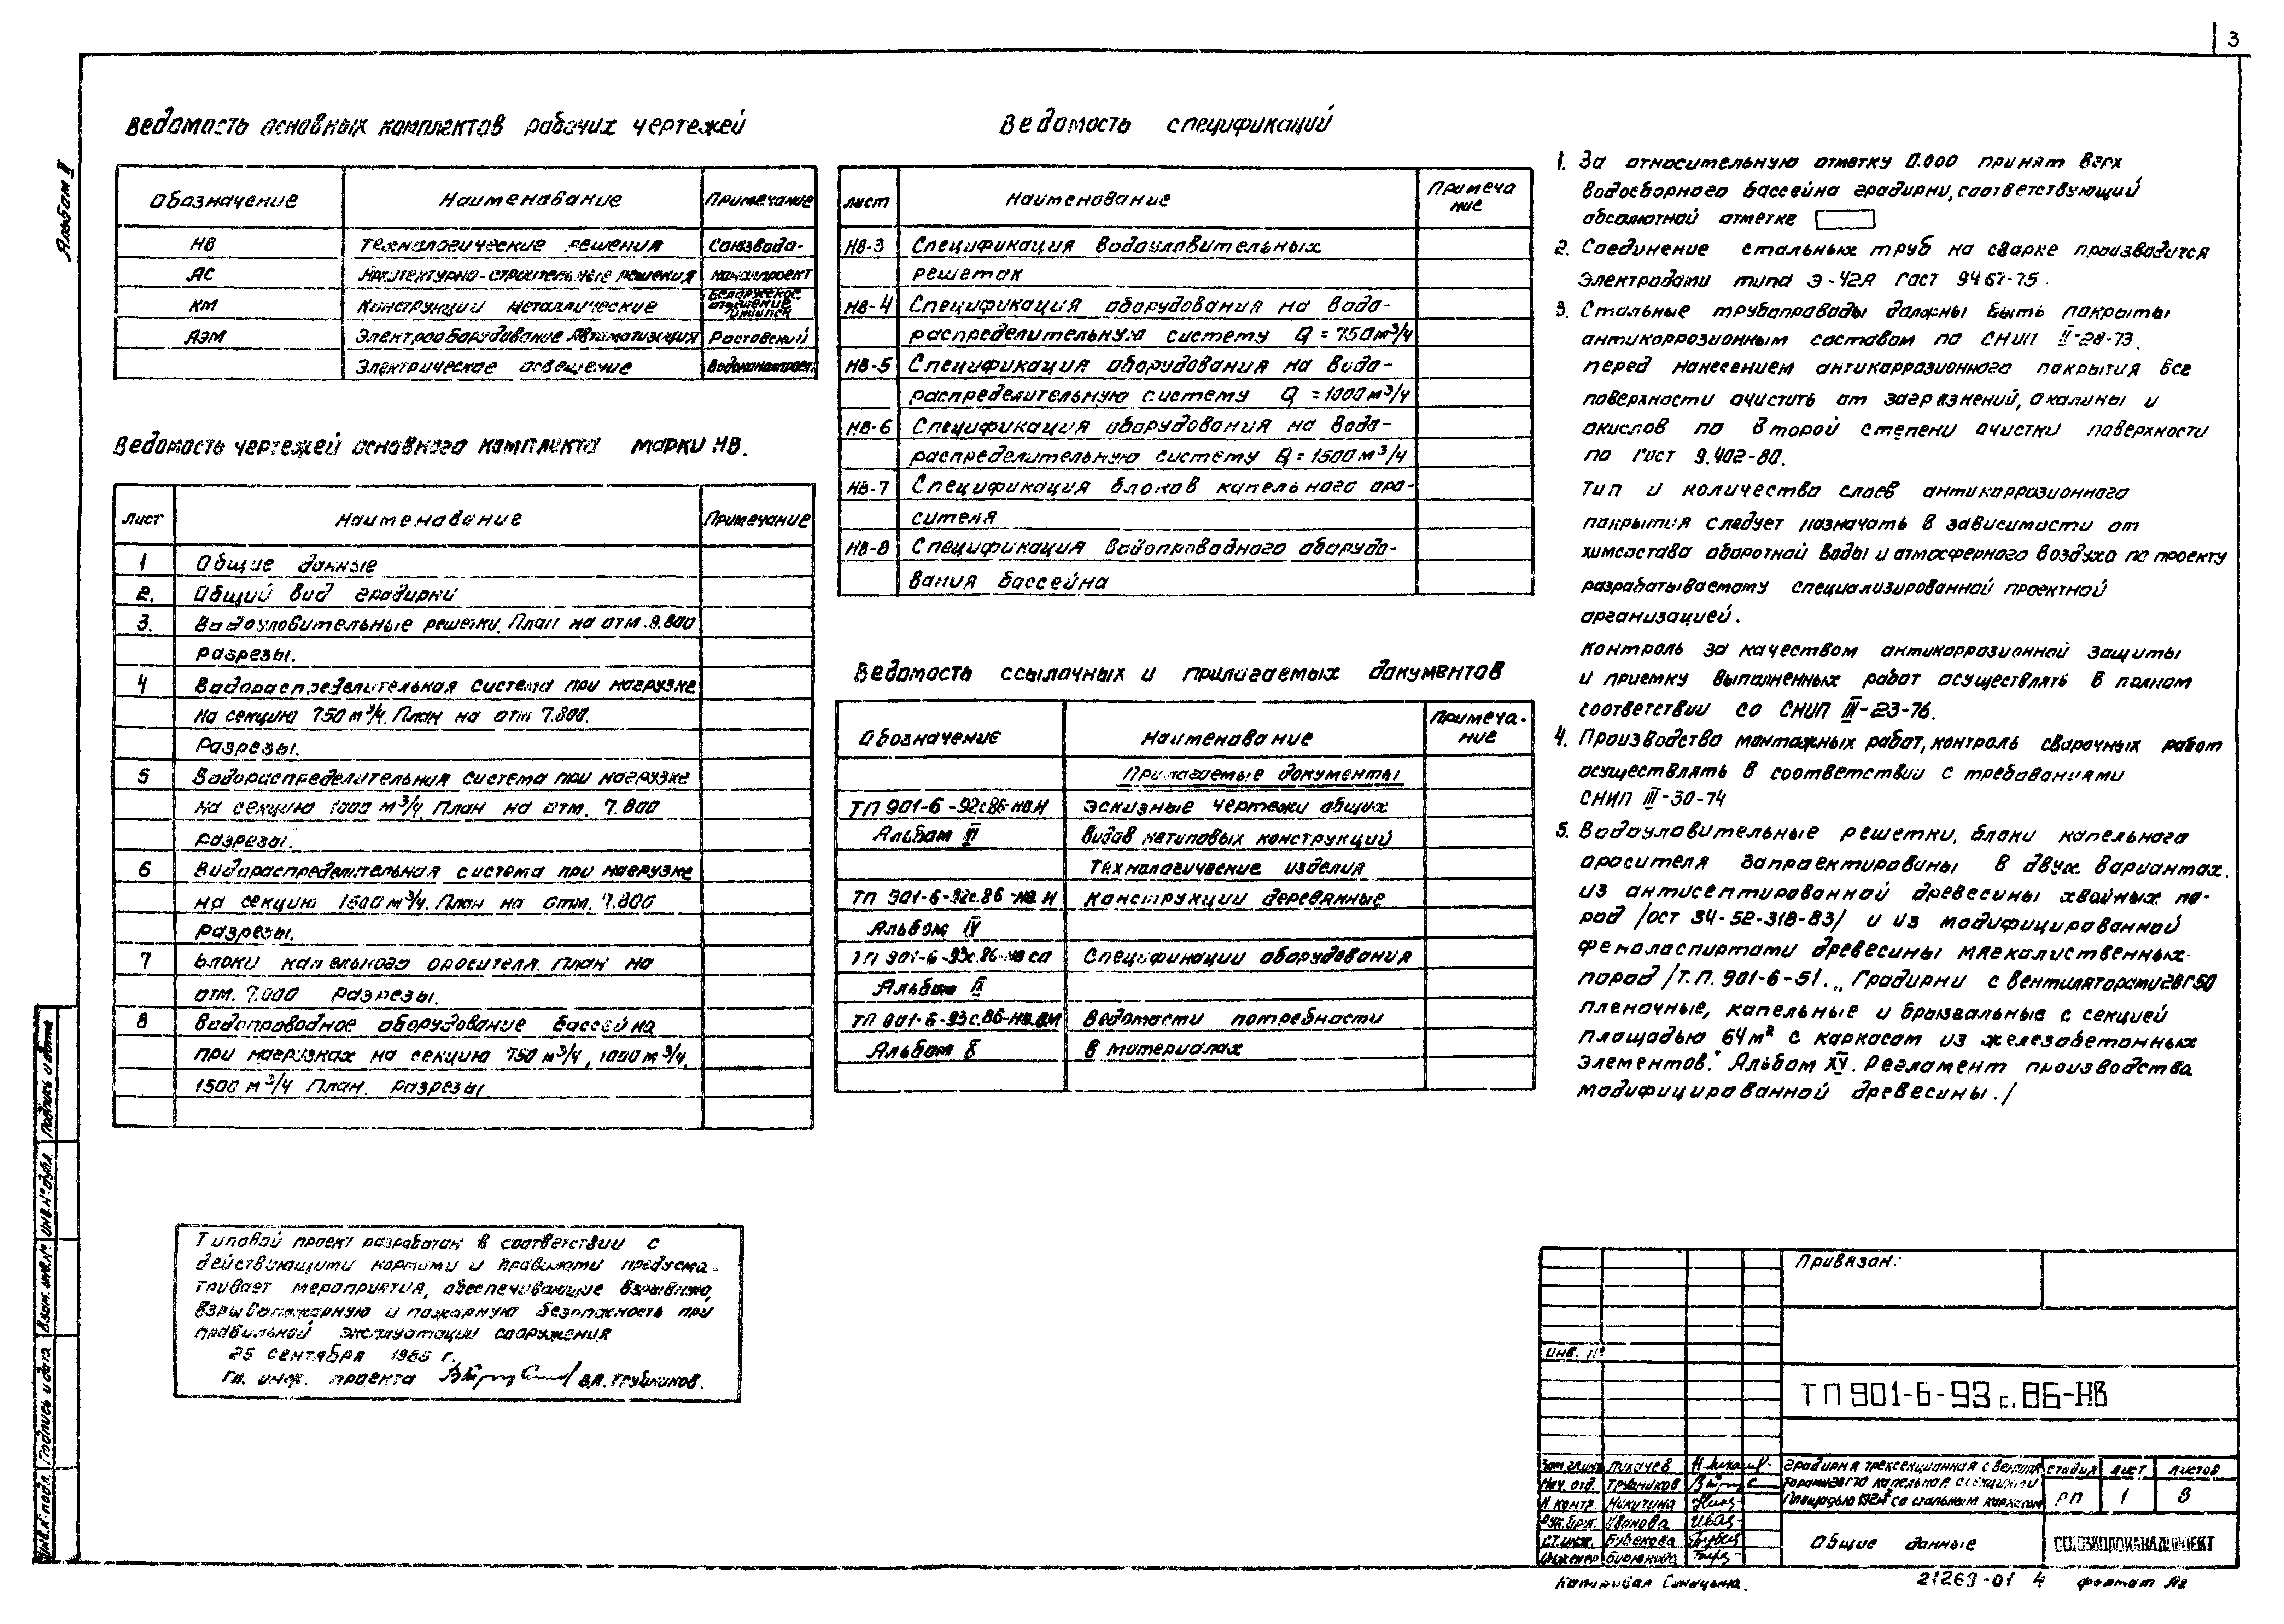 3
Альбом II
Ведомость основных комплектов рабочих чертежей
Обозначение Наименование Примечание
НВ Технологические решения Союзвода-
АС Архитектурно-строительные решения каналпроект
КМ Конструкции металлические Белорусское отделение
АЭМ Электрооборудование Автоматизация Ростовский
Электрическое освещение Водоканалпроект
Ведомость чертежей основного комплекта марки НВ.
Лист Наименование Примечание
1 Общие данные
2. Общий вид градирни
3. Водоуловительные решетки. План на отм. 9.800
Разрезы.
4 Водораспределительная система при нагрузке
на секцию 750 м³/ч. План на отм 7.800.
Разрезы.
5 Водораспределительная система при нагрузке
на секцию 1000 м³/ч. План на отм. 7.800
разрезы.
6 Водораспределительная система при нагрузке
на секцию 1500 м³/ч. План на отм. 7.800
Разрезы.
7 Блоки капельного оросителя. План на
отм. 7.000 Разрезы.
8 Водопроводное оборудование бассейна
при нагрузках на секцию 750 м³/ч, 1000 м³/ч,
1500 м³/ч План. Разрезы
Типовой проект разработан в соответствии с
действующими нормами и правилами предусма-
тривает мероприятия, обеспечивающие взрывную,
взрывопожарную и пожарную безопасность при
правильной эксплуатации сооружения
25 сентября 1985 г.
Гл. инж. проекта В.А. Трубников.
Ведомость спецификаций
Лист Наименование Примеча
ние
НВ-3 Спецификация водоуловительных
решеток
НВ-4 Спецификация оборудования на водо-
распределительную систему Q = 750 м³/ч
НВ-5 Спецификация оборудования на водо-
распределительную систему Q = 1000 м³/ч
НВ-6 Спецификация оборудования на водо-
распределительную систему Q = 1500 м³/ч
НВ-7 Спецификация блоков капельного оро-
сителя
НВ-8 Спецификация водопроводного оборудо-
вания бассейна
Ведомость ссылочных и прилагаемых документов
Обозначение Наименование Примеча-
ние
Прилагаемые документы
ТП 901-6-92с.86-НВ.Н Эскизные чертежи общих
Альбом III видов нетиповых конструкций
Технологические изделия
ТП 901-6-92с.86-НВ.Н Конструкции деревянные
Альбом IV
ТП 901-6-93с.86-НВ СО Спецификации оборудования
Альбом IX
ТП 901-6-93с.86-НВ.ВМ Ведомости потребности
Альбом X в материалах
1. За относительную отметку 0.000 принят верх
водосборного бассейна градирни, соответствующий
абсолютной отметке
2. Соединение стальных труб на сварке производится
электродами типа Э-42А ГОСТ 9467-75.
3. Стальные трубопроводы должны быть покрыты
антикоррозионным составом по СНИП II-28-73.
Перед нанесением антикоррозионного покрытия все
поверхности очистить от загрязнений, окалины и
окислов по второй степени очистки поверхности
по ГОСТ 9.402-80.
Тип и количество слоев антикоррозионного
покрытия следует назначать в зависимости от
химсостава оборотной воды и атмосферного воздуха по проекту
разрабатываемому специализированной проектной
организацией.
Контроль за качеством антикоррозионной защиты
и приемку выполненных работ осуществлять в полном
соответствии со СНИП III-23-76.
4. Производство монтажных работ, контроль сварочных работ
осуществлять в соответствии с требованиями
СНИП III-30-74
5. Водоуловительные решетки, блоки капельного
оросителя запроектированы в двух вариантах.
из антисептированной древесины хвойных по-
род /ОСТ 34-52-318-83/ и из модифицированной
фенолоспиртами древесины мягколиственных
пород /Т.П. 901-6-51. „Градирни с вентиляторами 2ВГ50
пленочные, капельные и брызгальные с секцией
площадью 64 м² с каркасом из железобетонных
элементов". Альбом XV. Регламент производства
модифицированной древесины./
Привязан:
Инв. №
ТП 901-6-93с.86-НВ
Зам.гл.инж Лихачев
Нач. отд. Трубников
Н. контр. Никитина
Рук. бриг. Иванова
Ст. инж.
Инженер Бирюкова
Градирня трехсекционная с вентиля
торами 2ВГ70 капельная с секциями
Площадью 192 м² со стальным каркасом
Стадия Лист Листов
РП 1 8
Общие данные
СОЮЗВОДОКАНАЛПРОЕКТ
Копировал Синицына.
21269-01 4 формат А2
Инв. № подл. Подпись и дата Взам. инв. № Инв. № дубл. Подпись и дата